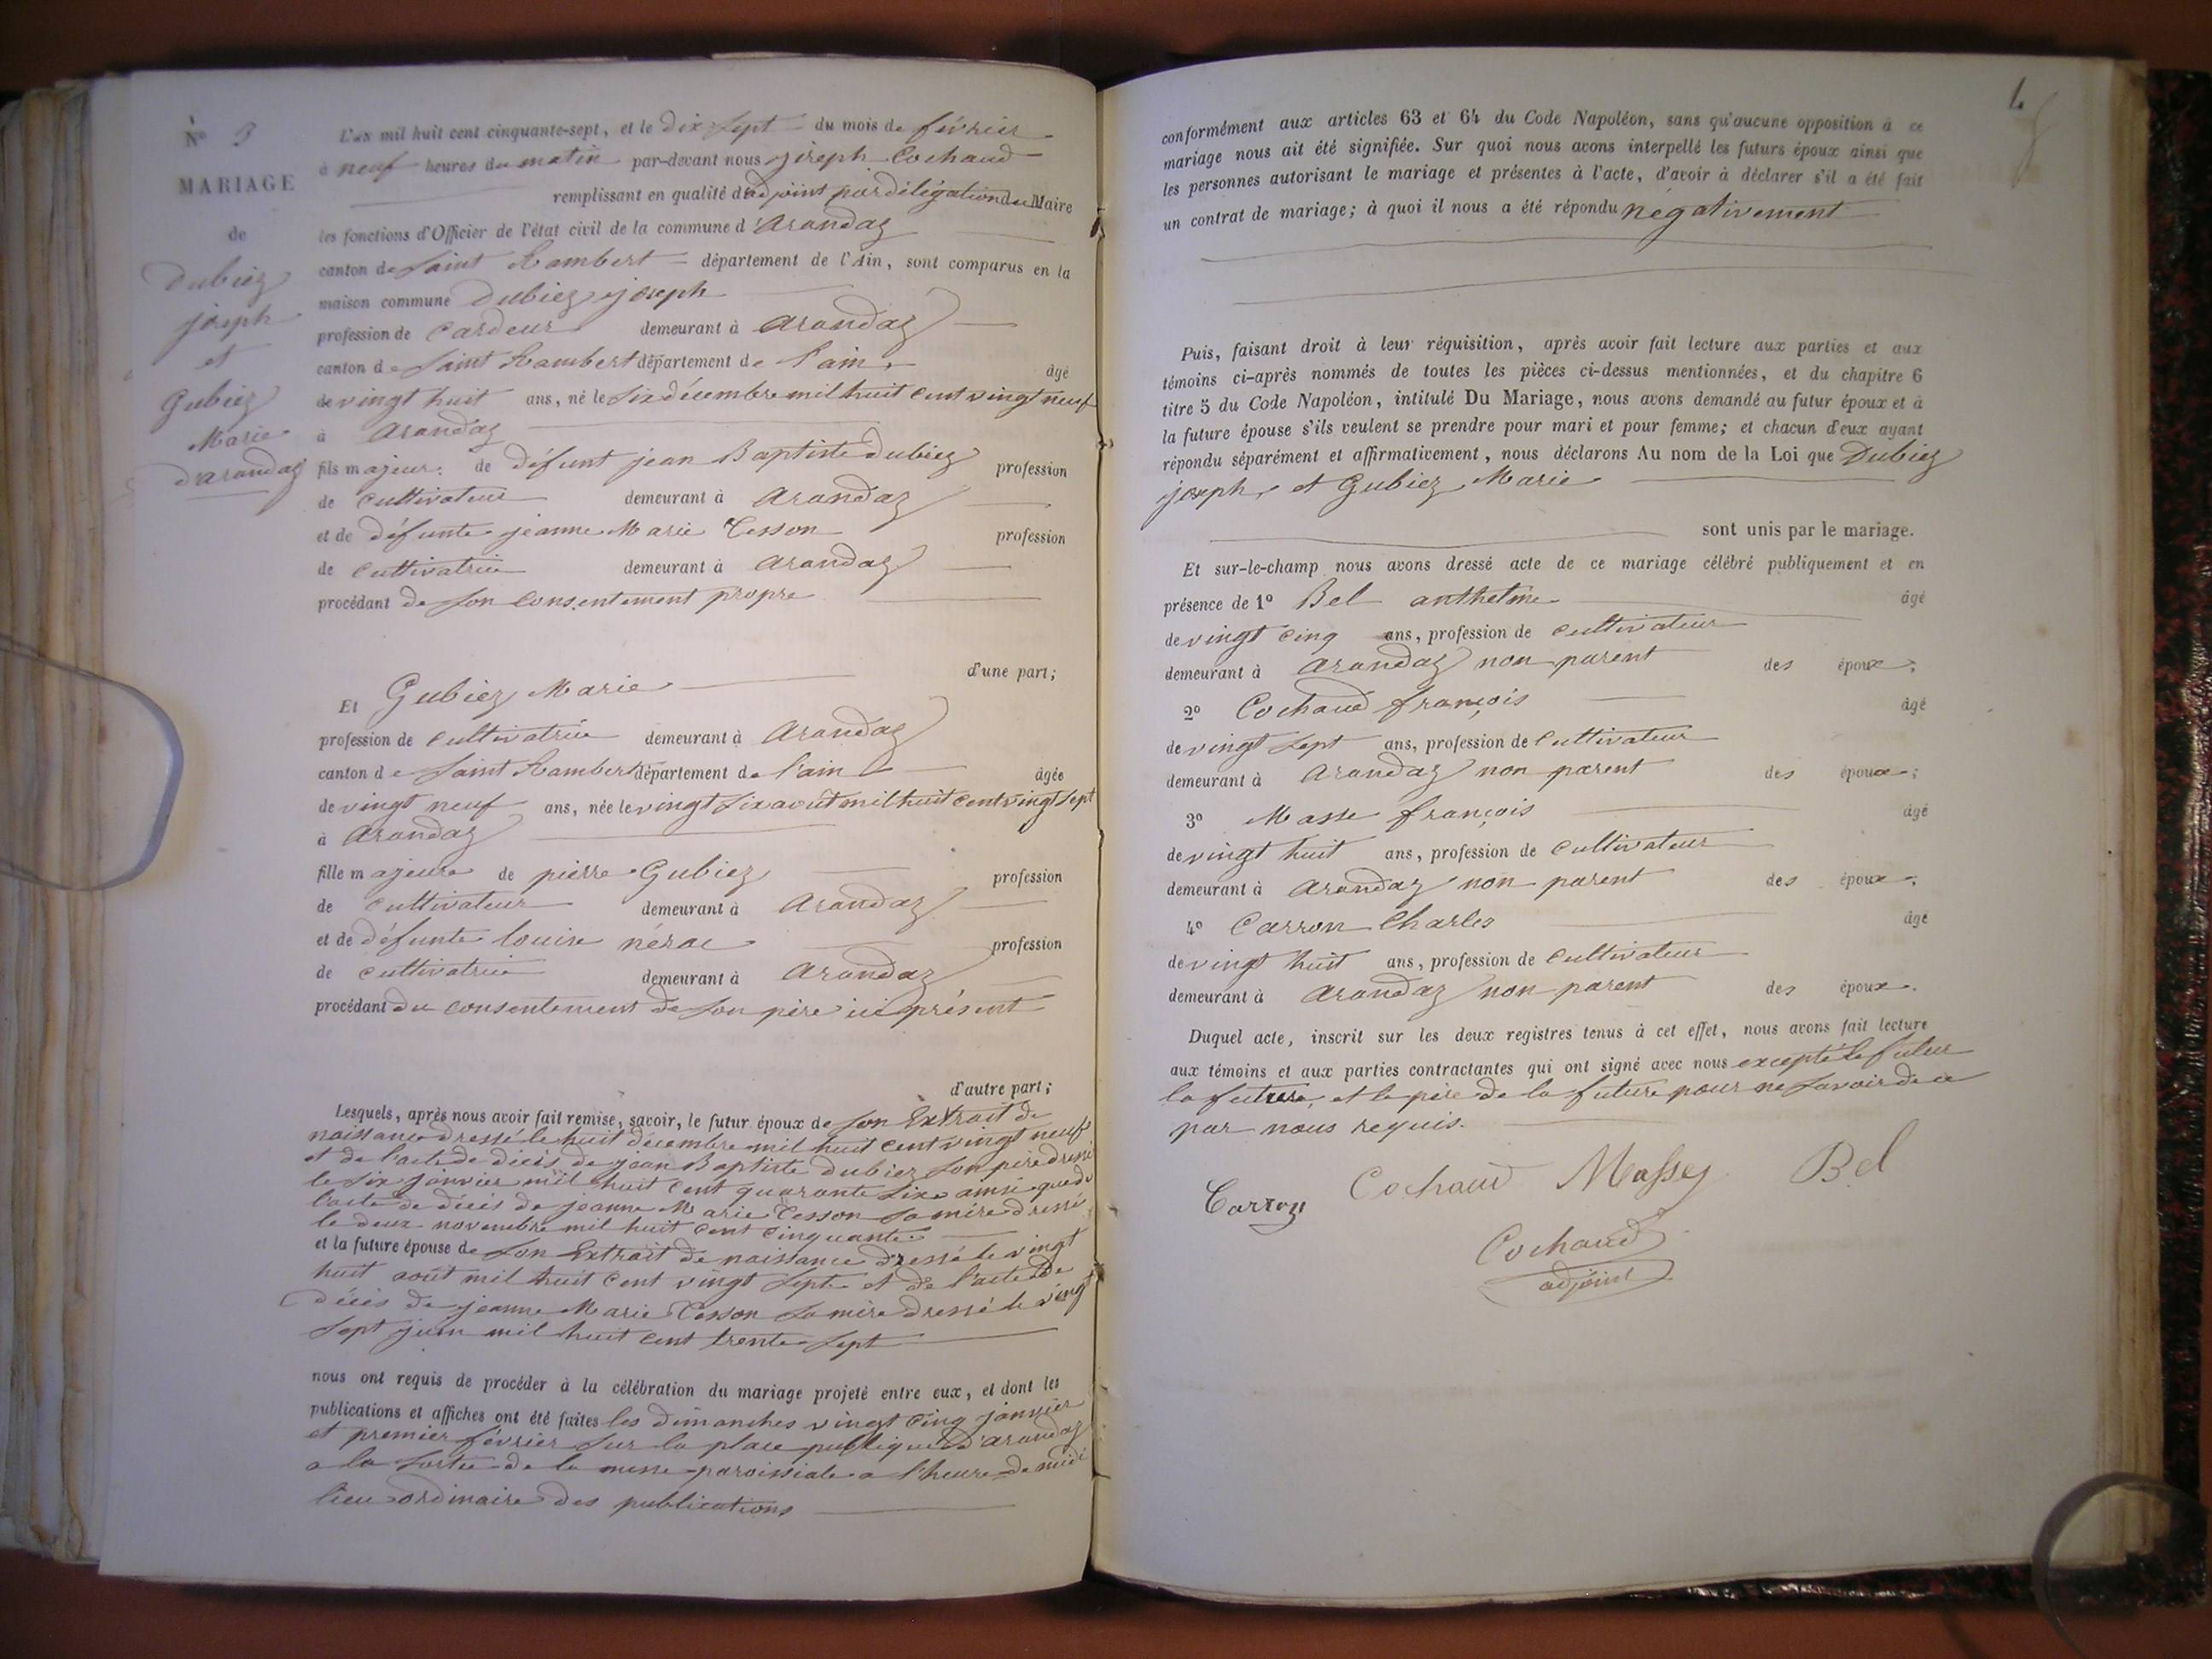 No 3
MARIAGE
de
Dubiez
joseph
et
Gubiez
Marie
d'arandaz
L'an mil huit cent cinquante-sept, et le dix sept du mois de février
à neuf heures du matin par-devant nous joseph Cochaud
remplissant en qualité d'adjoint par délégation du Maire
les fonctions d'Officier de l'état civil de la commune d'Arandaz
canton de Saint Rambert département de l'Ain, sont comparus en la
maison commune Dubiez joseph
profession de Cardeur demeurant à Arandaz
canton de Saint Rambert département de l'ain âgé
de vingt huit ans, né le six décembre mil huit cent vingt neuf
à Arandaz
fils majeur de défunt jean Baptiste Dubiez profession
de Cultivateur demeurant à Arandaz
et de défunte jeanne Marie Tesson profession
de Cultivatrice demeurant à Arandaz
procédant de son consentement propre
d'une part;
Et Gubiez Marie
profession de Cultivatrice demeurant à Arandaz
canton de Saint Rambert département de l'ain âgée
de vingt neuf ans, née le vingt six août mil huit cent vingt sept
à Arandaz
fille majeure de pierre Gubiez profession
de Cultivateur demeurant à Arandaz
et de défunte louise nérac profession
de Cultivatrice demeurant à Arandaz
procédant du consentement de son père ici présent
d'autre part;
Lesquels, après nous avoir fait remise, savoir, le futur époux de son Extrait de
naissance dressé le huit décembre mil huit cent vingt neuf
et de l'acte de décès de jean Baptiste Dubiez son père dressé
le six janvier mil huit cent quarante six ainsi que de
l'acte de décès de jeanne Marie Tesson sa mère dressé
le deux novembre mil huit cent cinquante
et la future épouse de son Extrait de naissance dressé le vingt
huit août mil huit cent vingt sept et de l'acte de
décès de jeanne Marie Tesson sa mère dressé le vingt
sept juin mil huit cent trente sept
nous ont requis de procéder à la célébration du mariage projeté entre eux, et dont les
publications et affiches ont été faites les dimanches vingt cinq janvier
et premier février sur la place publique d'arandaz
a la sortie de la messe paroissiale a l'heure de midi
lieu ordinaire des publications
conformément aux articles 63 et 64 du Code Napoléon, sans qu'aucune opposition à ce
mariage nous ait été signifiée. Sur quoi nous avons interpellé les futurs époux ainsi que
les personnes autorisant le mariage et présentes à l'acte, d'avoir à déclarer s'il a été fait
un contrat de mariage; à quoi il nous a été répondu négativement
Puis, faisant droit à leur réquisition, après avoir fait lecture aux parties et aux
témoins ci-après nommés de toutes les pièces ci-dessus mentionnées, et du chapitre 6
titre 5 du Code Napoléon, intitulé Du Mariage, nous avons demandé au futur époux et à
la future épouse s'ils veulent se prendre pour mari et pour femme; et chacun d'eux ayant
répondu séparément et affirmativement, nous déclarons Au nom de la Loi que Dubiez
joseph et Gubiez Marie
sont unis par le mariage.
Et sur-le-champ nous avons dressé acte de ce mariage célébré publiquement et en
présence de 1o Bel anthelme âgé
de vingt cinq ans, profession de Cultivateur
demeurant à Arandaz non parent des époux;
2o Cochaud françois âgé
de vingt sept ans, profession de Cultivateur
demeurant à Arandaz non parent des époux;
3o Masse françois âgé
de vingt huit ans, profession de Cultivateur
demeurant à Arandaz non parent des époux;
4o Carron Charles âgé
de vingt huit ans, profession de Cultivateur
demeurant à Arandaz non parent des époux.
Duquel acte, inscrit sur les deux registres tenus à cet effet, nous avons fait lecture
aux témoins et aux parties contractantes qui ont signé avec nous excepté le futur
la future, et le père de la future pour ne savoir de ce
par nous requis.
Carron Cochaud Massey Bel
Cochaud
adjoint